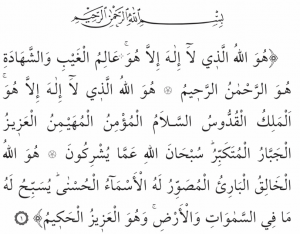 بِسْمِ اللّٰهِ الرَّحْمٰنِ الرَّحِيمِ
﴿هُوَ اللّٰهُ الَّذ۪ي لَٓا إِلٰهَ إِلَّا هُوَۚ عَالِمُ الْغَيْبِ وَالشَّهَادَةِ
هُوَ الرَّحْمٰنُ الرَّح۪يمُ ۞ هُوَ اللّٰهُ الَّذ۪ي لَٓا إِلٰهَ إِلَّا هُوَۚ
اَلْمَلِكُ الْقُدُّوسُ السَّلَامُ الْمُؤْمِنُ الْمُهَيْمِنُ الْعَز۪يزُ
الْجَبَّارُ الْمُتَكَبِّرُۜ سُبْحَانَ اللّٰهِ عَمَّا يُشْرِكُونَ ۞ هُوَ اللّٰهُ
الْخَالِقُ الْبَارِئُ الْمُصَوِّرُ لَهُ الْأَسْمَٓاءُ الْحُسْنٰىۜ يُسَبِّحُ لَهُ
مَا فِي السَّمٰوَاتِ وَالْأَرْضِۚ وَهُوَ الْعَز۪يزُ الْحَك۪يمُ﴾